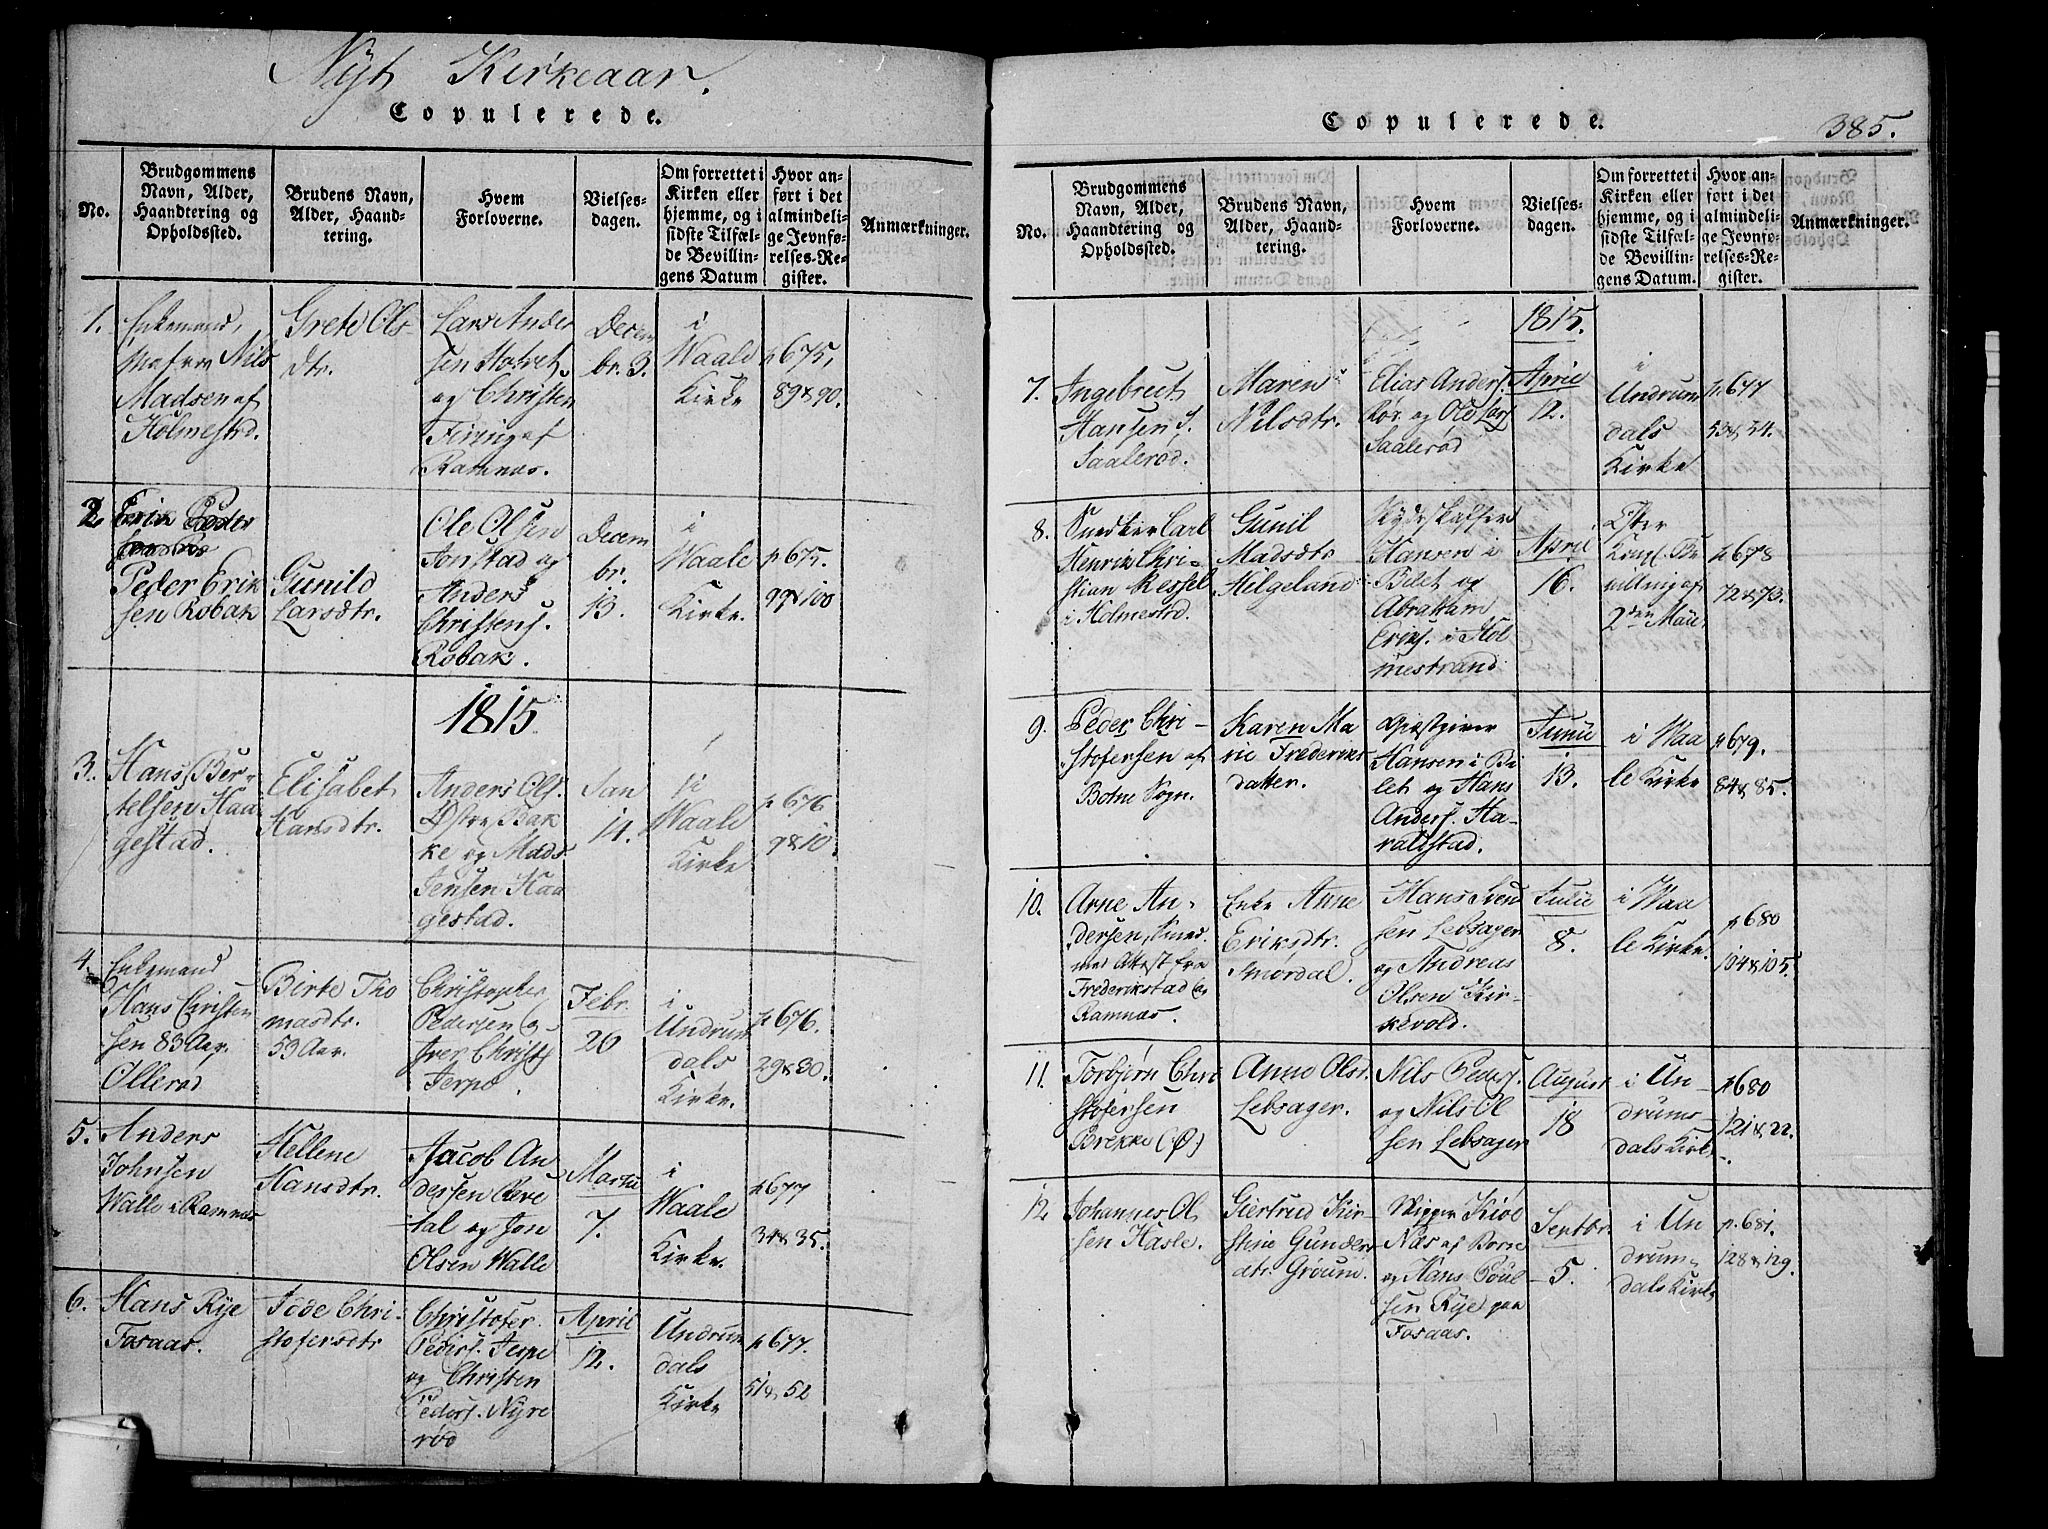 Nyt Kirkeaar.
Copulerede.
No.
Brudgommens
Navn, Alder,
Haandtering og
Opholdssted.
Brudens Navn,
Alder, Haand-
tering.
Hvem
Forloverne.
Vielses-
dagen.
Om forrettet i
Kirken eller
hjemme, og i
sidste Tilfæl-
de Bevillin-
gens Datum
Hvor an-
ført i det
almindeli-
ge Jevnfø-
relses-Re-
gister.
Anmærkninger.
1.
Enkemand,
Nils
Madsen af
Holmestrd.
Grete Ols
dtr.
Lars Ander
sen Hotvet
og Christen
Firing af
Ramnæs.
Decem
br. 3.
i
Waale
Kirke
p 675,
89 & 90.
2
Erik Peder
Peder Erik
sen Robak
Gunild
Larsdtr.
Ole Olsen
Jonstad og
Anders
Christens.
Robak.
Decem
br.
13.
i
Waale
Kirke.
p 675.
99 & 100
1815
3.
Hans Ber-
telsen Haa
gestad.
Elisabet
Hansdtr.
Anders Ols.
Østre Bak
ke og Mads
Jensen Haa
gestad.
Jan
14.
i
Waale
Kirke
p 676
9 & 10.
4.
Enkemand
Hans Cristen
sen 83 Aar.
Ollerød
Birte Tho
masdtr.
53 Aar.
Christopher
Pedersen og
Iver Christs
Jerpe.
Febr.
20
i
Undrum
dals
Kirke.
p 676.
29 & 30.
5.
Anders
Johnsen
Walle i Ramnæs
Hellene
Hansdtr.
Jacob An
dersen Reve
tal og Jon
Olsen Walle
Martii
7.
i
Waale
Kirke.
p 677
34 & 35.
6.
Hans Rye
Fosaas.
Tode Chri-
stofersdtr
Christofer
Peders. Jerpe
og Christen
Peders. Nyre
rød
April
12.
Undrum
dals
Kirke
p 677.
51 & 52
Copulerede.
385.
No.
Brudgommens
Navn, Alder,
Haandtering og
Opholdssted.
Brudens Navn,
Alder, Haand-
tering.
Hvem
Forloverne.
Vielses-
dagen.
Om forrettet i
Kirken eller
hjemme, og i
sidste Tilfæl-
de Bevillin-
gens Datum.
Hvor an-
ført i det
almindeli-
ge Jevnfø-
relses-Re-
gister.
Anmærkninger.
1815.
7.
Ingebrect
Hansen S.
Saalerød.
Maren
Nilsdtr.
Elias Anders.
Rør og Ole Lars
Saalerød
April
12.
i
Undrum
dals
Kirke
p. 677
53 & 54.
8.
Snedker Carl
Henrik Chri-
stian Ressel
i Holmestrd.
Gunil
Madsdtr
Helgeland
Skydsskaffer
Hansen i
Bilet og
Abraham
Eriks. i Hol
mestrand
April
16.
Efter
Kongl. Be
villing af
2den Mai.
p 678
72 & 73.
9.
Peder Chri-
stofersen af
Botne Sogn.
Karen Ma
rie Frederiks
datter.
Giæstgiver
Hansen i Bi
let og Hans
Anders. Ha-
raldstad.
Junii
13.
i Waa
le Kirke
p 679.
84 & 85.
10.
Arne An-
dersen, Smed
med Attest fra
Frederikstad og
Ramnæs.
Enke Anne
Eriksdtr.
Smørdal.
Hans Sven
sen Lebsager
og Andreas
Olsen Kir-
kevold.
Julii
8.
i Waa
le Kirke.
p 680
104 & 105.
11.
Torbjørn Chri
stofersen
Brekke (Ø)
Anne Olsr
Lebsager.
Nils Peders.
og Nils Ol
sen Lebsager
August
18
i Un
drums
dals Kirk
p 680
121 & 22.
12
Johannes Ol
sen Hasle.
Giertrud Kir-
stine Gunders
dtr. Groum.
Skipper Kiøl
Næs af Borre
og Hans Poul
sen Rye paa
Fosaas.
Septbr.
5.
i Un
drum
dals Kirk
p. 681.
128 & 129.